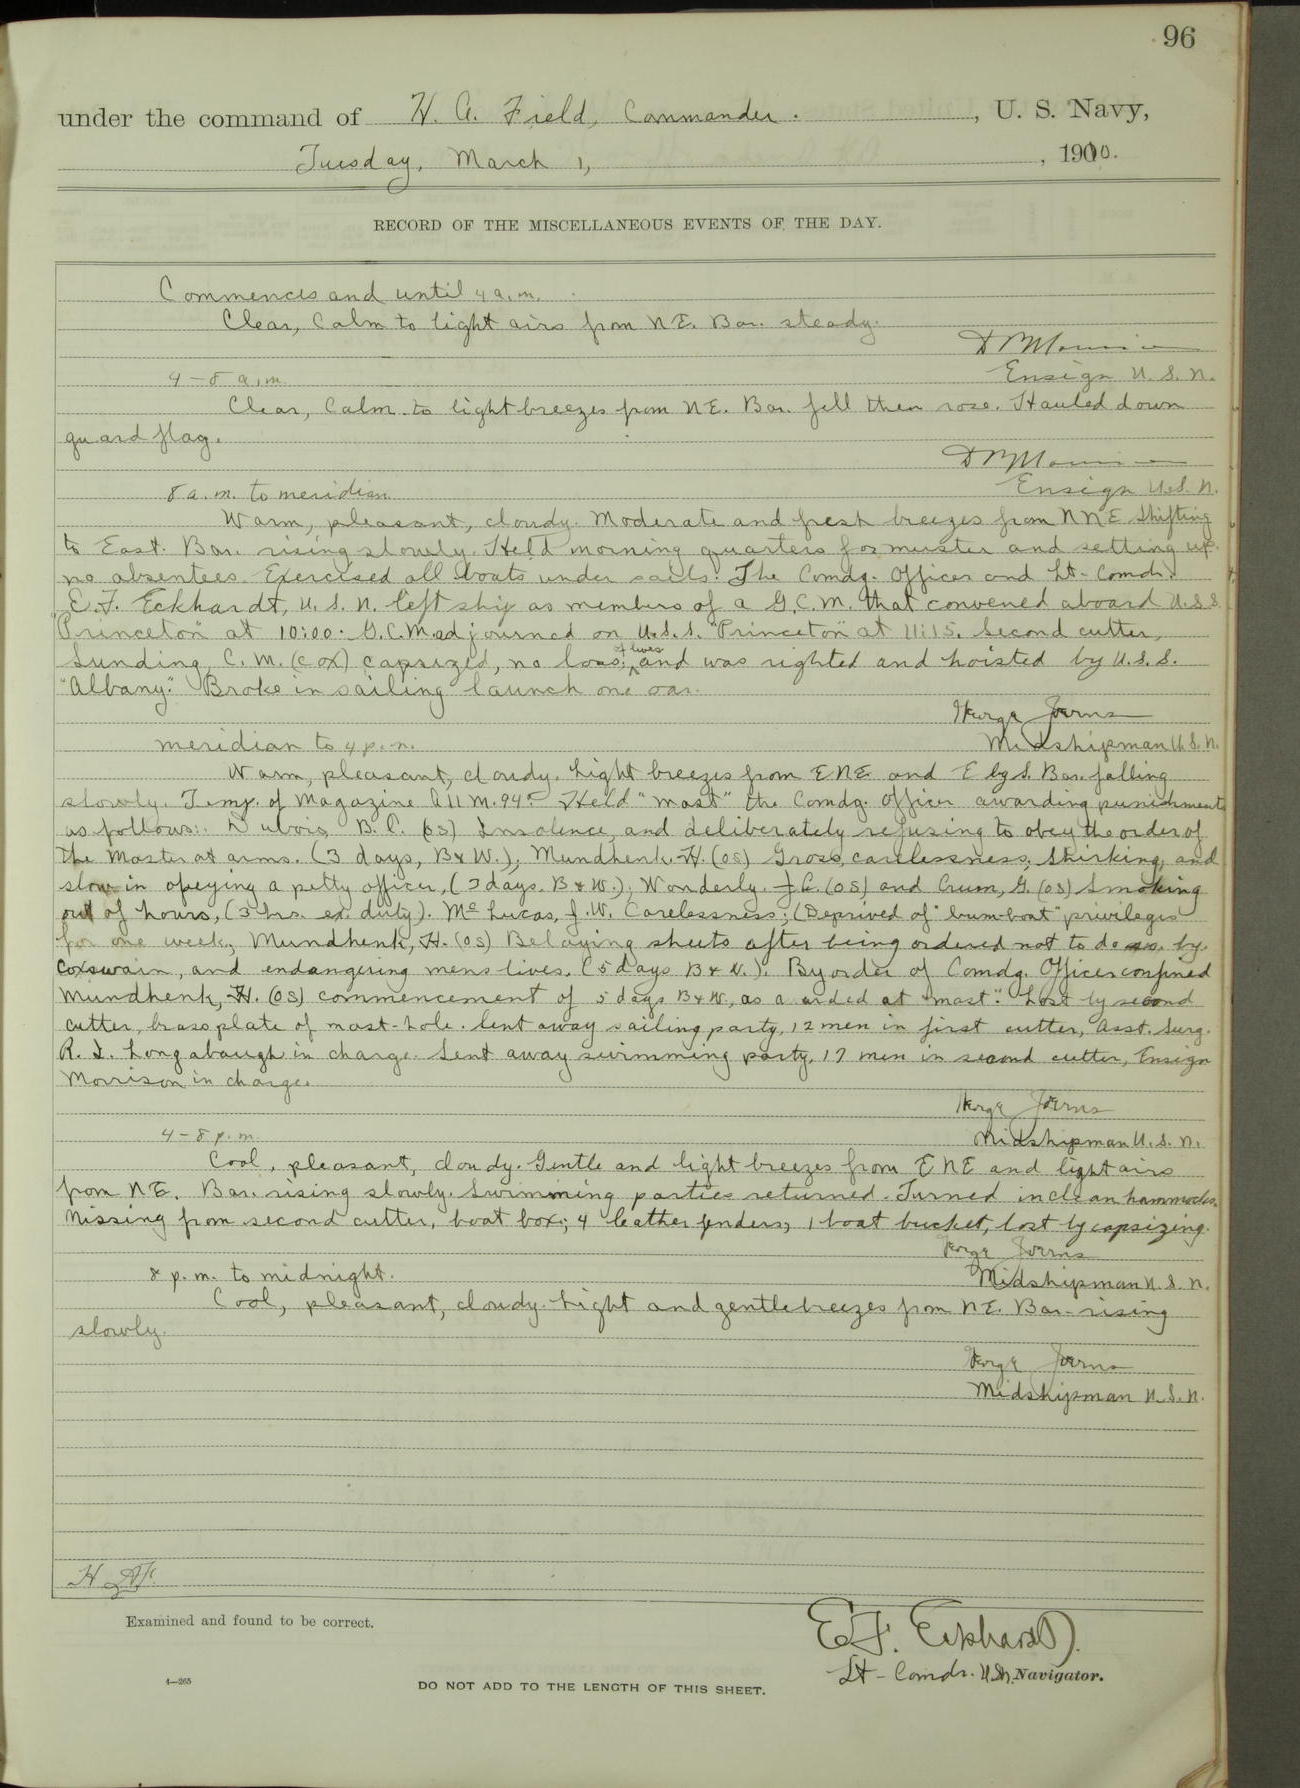 96
under the command of H. A. Field, Commander. , U. S. Navy,
Tuesday, March 1, , 1910.
RECORD OF THE MISCELLANEOUS EVENTS OF THE DAY.
Commences and until 4 a.m.
Clear, Calm to light airs from NE. Bar. steady.
Ensign U.S.N.
4-8 a.m.
Clear, Calm to light breezes from NE. Bar. fell then rose. Hauled down
guard flag.
Ensign U.S.N.
8 a.m. to meridian.
Warm, pleasant, cloudy. Moderate and fresh breezes from NNE shifting
to East. Bar. rising slowly. Held morning quarters for muster and setting up.
no absentees. Exercised all boats under sails. The Comdg. Officer and Lt-Comdr.
E.F. Eckhardt, U.S.N. left ship as members of a G.C.M. that convened aboard U.S.S.
"Princeton" at 10:00. G.C.M. adjourned on U.S.S. "Princeton" at 11:15. Second cutter,
Sunding, C.M. (cox) capsized, no loss; of lives and was righted and hoisted by U.S.S.
"Albany." Broke in sailing launch one oar.
Joerns
Midshipman U.S.N.
meridian to 4 p.m.
Warm, pleasant, cloudy. Light breezes from ENE and E by S. Bar. falling
slowly. Temp. of Magazine A 11 M. 94°. Held "mast" the Comdg. Officer awarding punishments
as follows: Dubois, B.C. (OS) Insolence, and deliberately refusing to obey the order of
the Master at arms. (3 days, B & W.); Mundhenk, H. (OS) Gross, carelessness; Shirking, and
slow in obeying a petty officer, (3 days. B & W.); Wonderly, J.A. (OS) and Crum, G. (OS) Smoking
out of hours, (3 hrs. ex. duty). McLucas, J.W. Carelessness; (Deprived of "bum-boat" privileges
for one week, Mundhenk, H. (OS) Belaying sheets after being ordered not to do so, by
Coxswain, and endangering mens lives. (5 days B & W.). By order of Comdg. Officer confined
Mundhenk, H. (OS) commencement of 5 days B & W, as awarded at "mast". Lost by second
cutter, brass plate of mast-hole. Sent away sailing party, 12 men in first cutter, Asst. Surg.
R. I. Longabaugh in charge. Sent away swimming party, 17 men in second cutter, Ensign
Morrison in charge.
Joerns
Midshipman U.S.N.
4-8 p.m.
Cool, pleasant, cloudy. Gentle and light breezes from ENE and light airs
from NE. Bar. rising slowly. Swimming parties returned. Turned in clean hammocks.
Missing from second cutter, boat box; 4 leather fenders, 1 boat bucket, lost by capsizing.
Joerns
Midshipman U.S.N.
8 p.m. to midnight.
Cool, pleasant, cloudy. Light and gentle breezes from NE. Bar. rising
slowly.
Joerns
Midshipman U.S.N.
H.A.F.
Examined and found to be correct.
E.F. Eckhardt.
Lt-Comdr. U.S.N. Navigator.
4—265
DO NOT ADD TO THE LENGTH OF THIS SHEET.